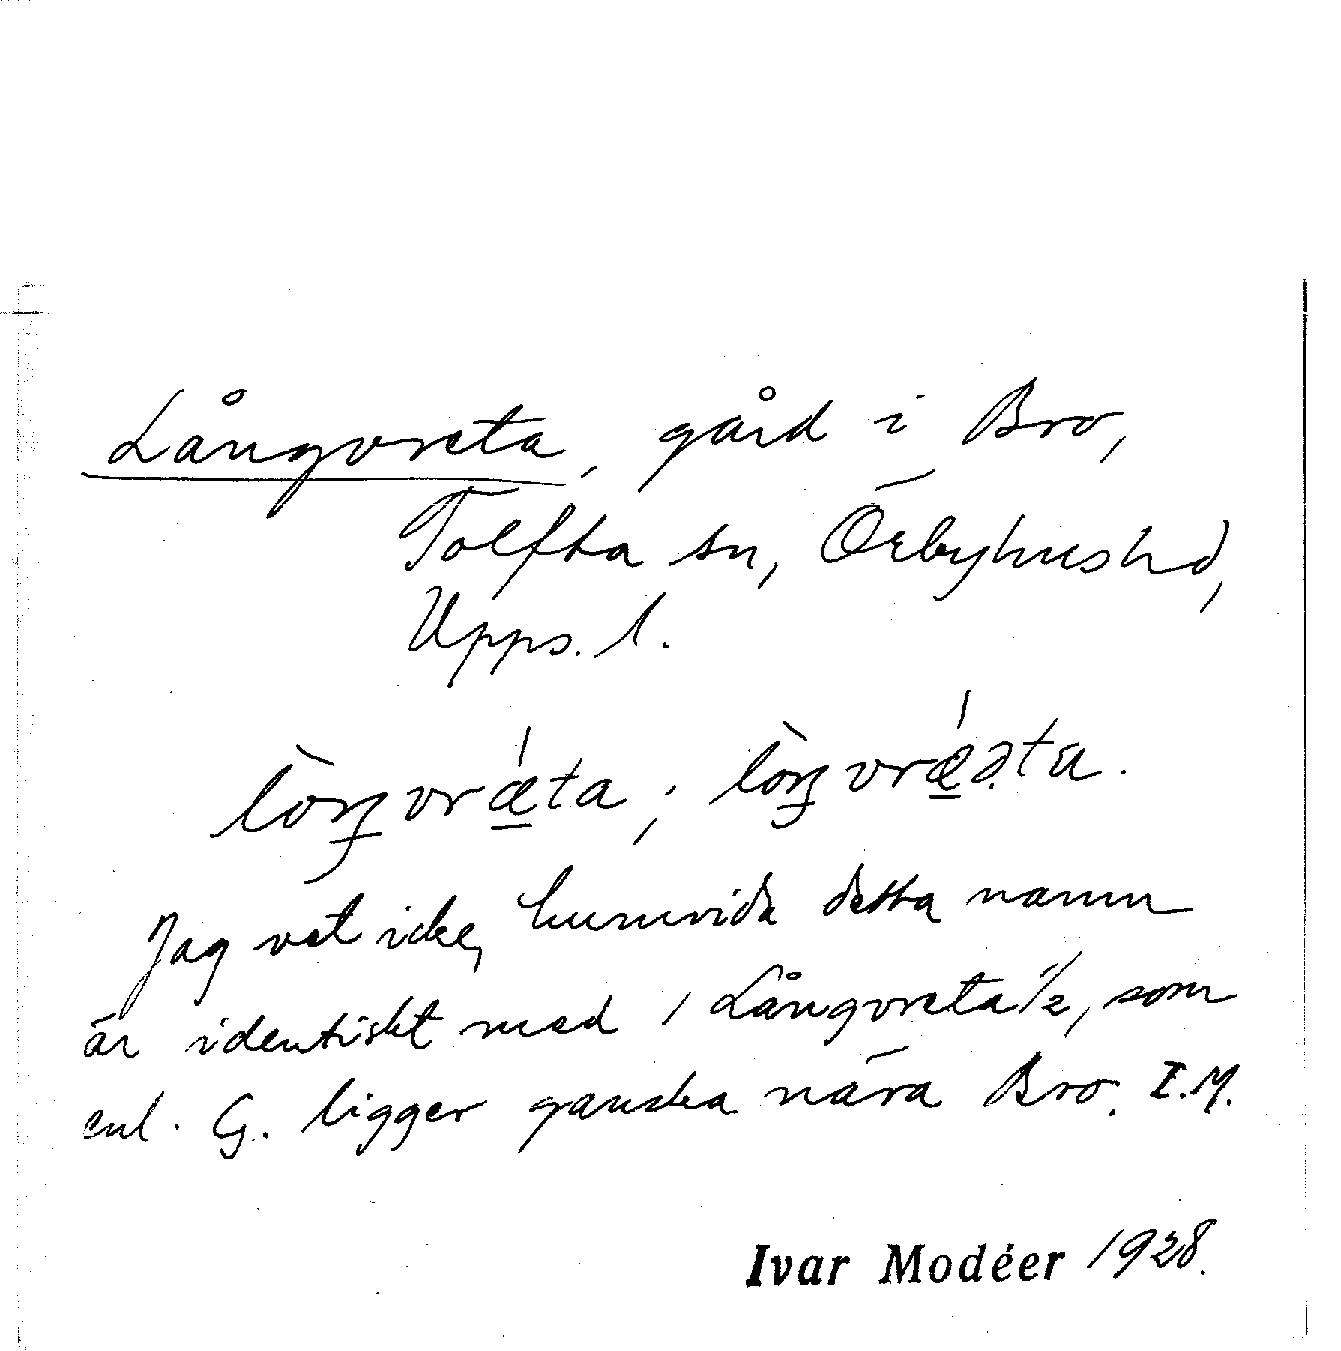 Långvreta, gård i Bro,
Tolfta sn, Örbyhus hd,
Upps. l.
lòŋvrǽta ; lòŋvrǽəta.
Jag vet icke, huruvida detta namn
är identiskt med 1 Långvreta 1/2, som
enl. G. ligger ganska nära Bro. I.M.
Ivar Modéer 1928.